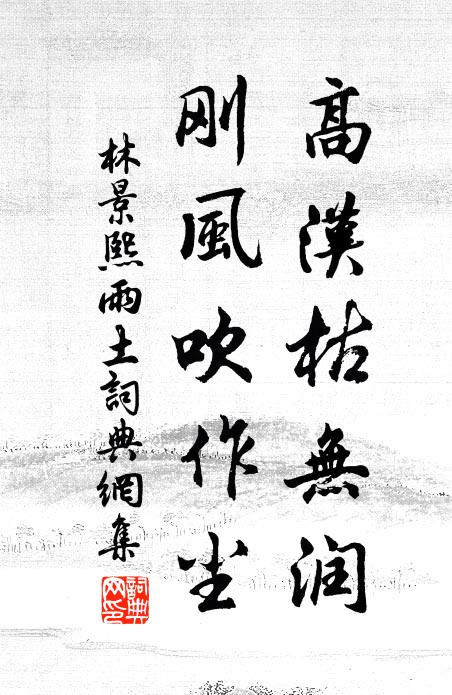 高漢枯無润
刚風吹作尘
林景熙雨土詞典網集
詞典网印